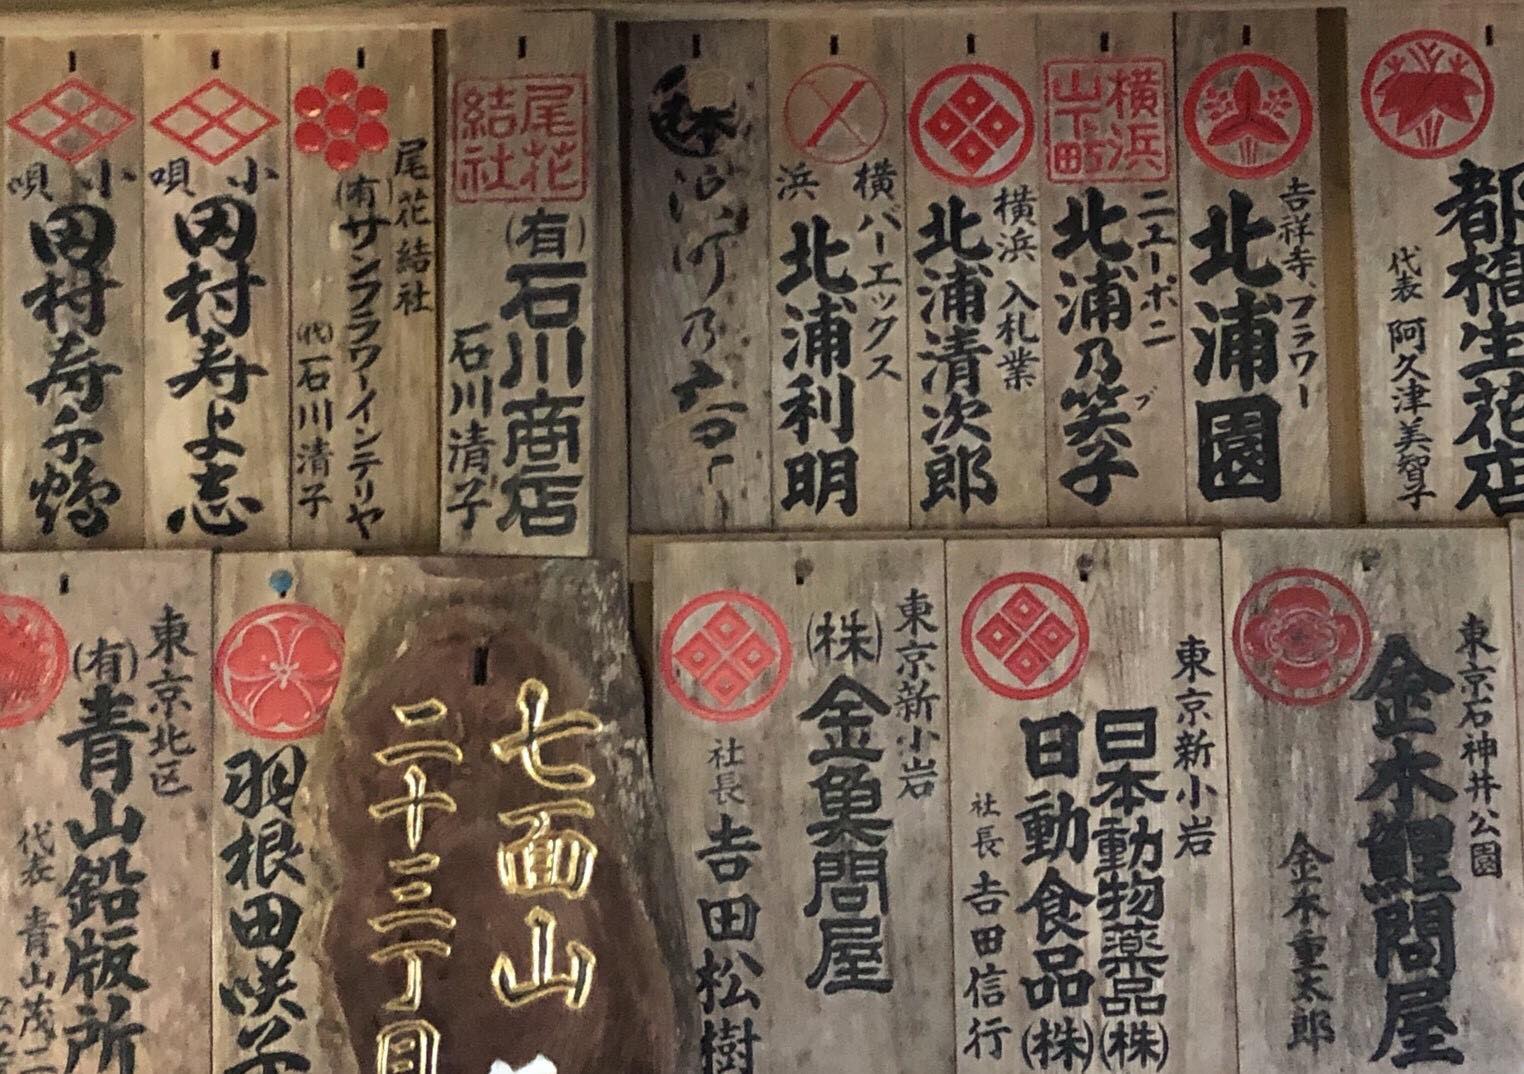 都橋生花店
代表 阿久津美智子
吉祥寺、フラワー
北浦園
横浜
山下町
ニューポニー
北浦乃笑子
横浜 入札業
北浦清次郎
横浜
バーエックス
北浦利明
尾花
結社
(有)石川商店
石川清子
尾花結社
(有)サンフラワーインテリヤ
(代)石川清子
小唄
田村寿よ志
小唄
田村寿千鶴
東京石神井公園
金木鯉問屋
金木重太郎
東京新小岩
日本動物薬品(株)
日動食品(株)
社長 吉田信行
東京新小岩
(株)金魚問屋
社長 吉田松樹
七面山
二十三丁目
羽根田咲子
東京北区
(有)青山鉛版所
代表 青山茂二